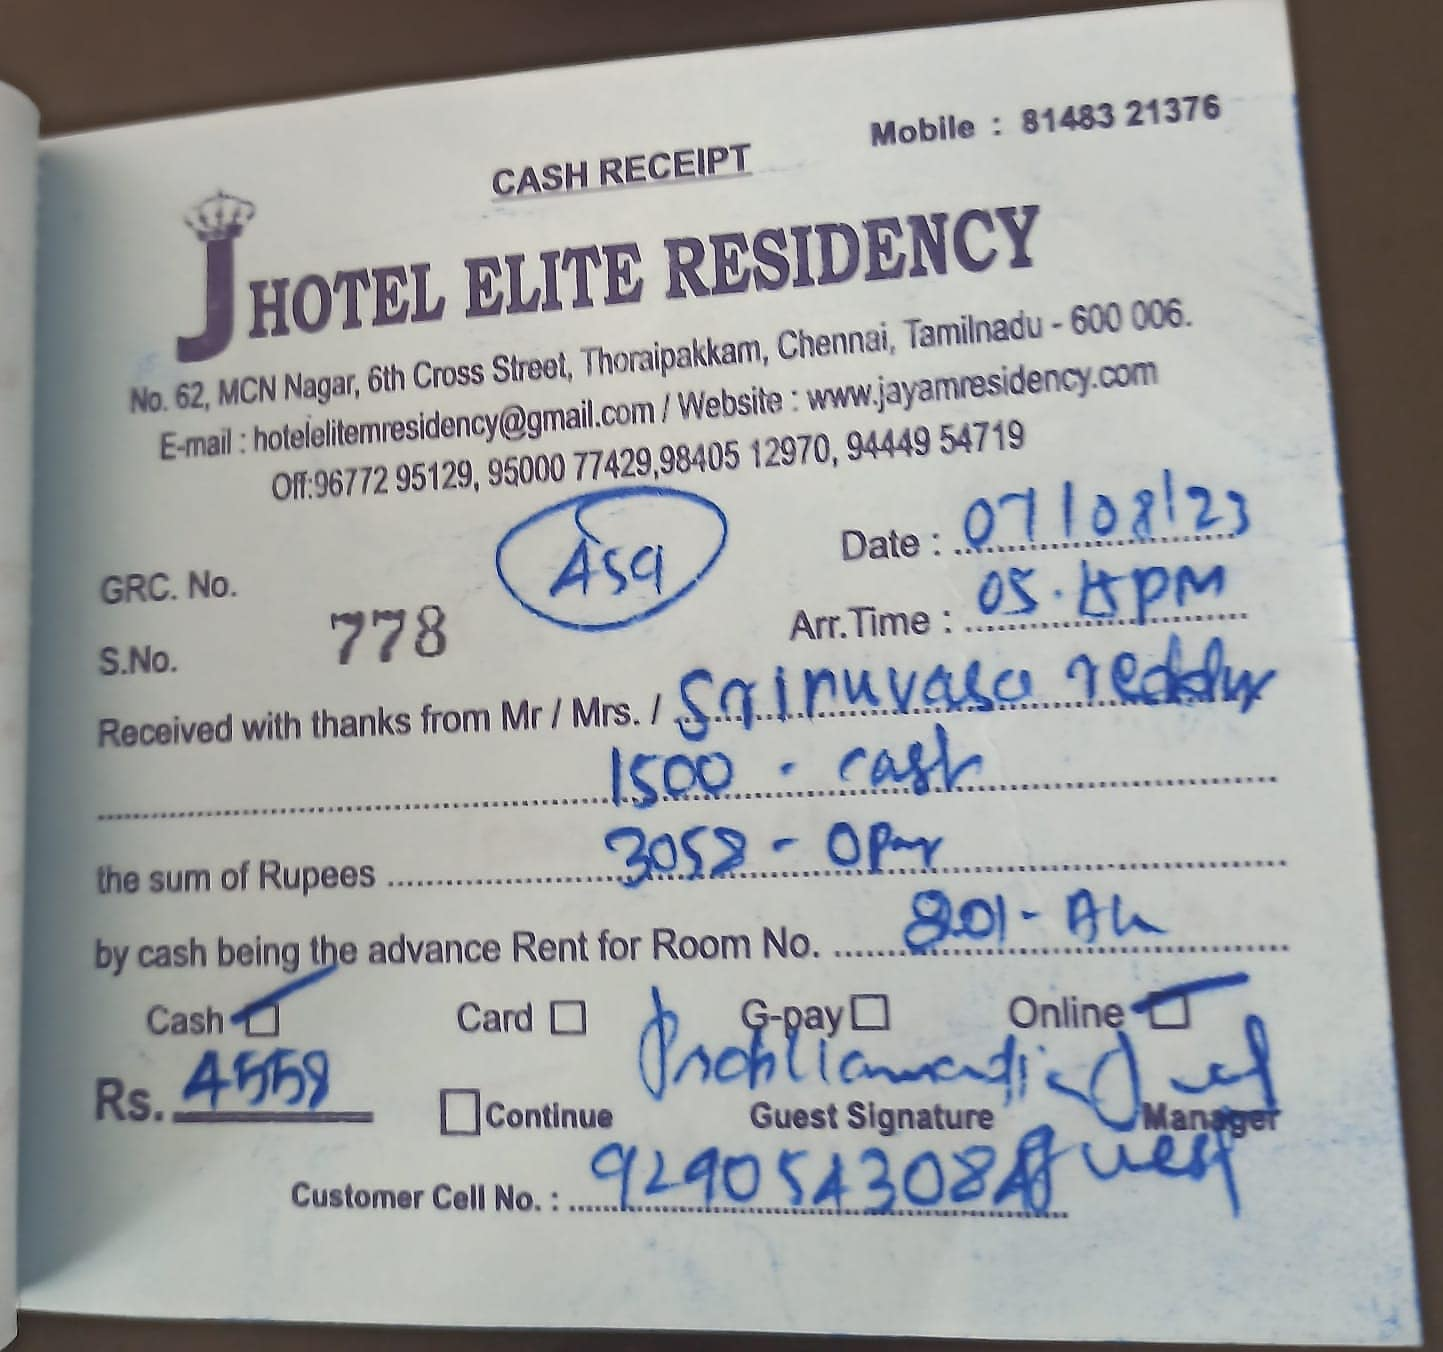 Mobile : 81483 21376
CASH RECEIPT
J HOTEL ELITE RESIDENCY
No. 62, MCN Nagar, 6th Cross Street, Thoraipakkam, Chennai, Tamilnadu - 600 006.
E-mail : hotelelitemresidency@gmail.com / Website : www.jayamresidency.com
Off:96772 95129, 95000 77429,98405 12970, 94449 54719
Date : 07/08/23
GRC. No.
Arr.Time : 05. PM
S.No. 778
Received with thanks from Mr / Mrs. / reddy
1500 - cash
the sum of Rupees 3058 - OPay
by cash being the advance Rent for Room No. 801 -
Cash Card G-pay Online
Rs. 4558 Continue Guest Signature Manager
Customer Cell No. : 9290543084